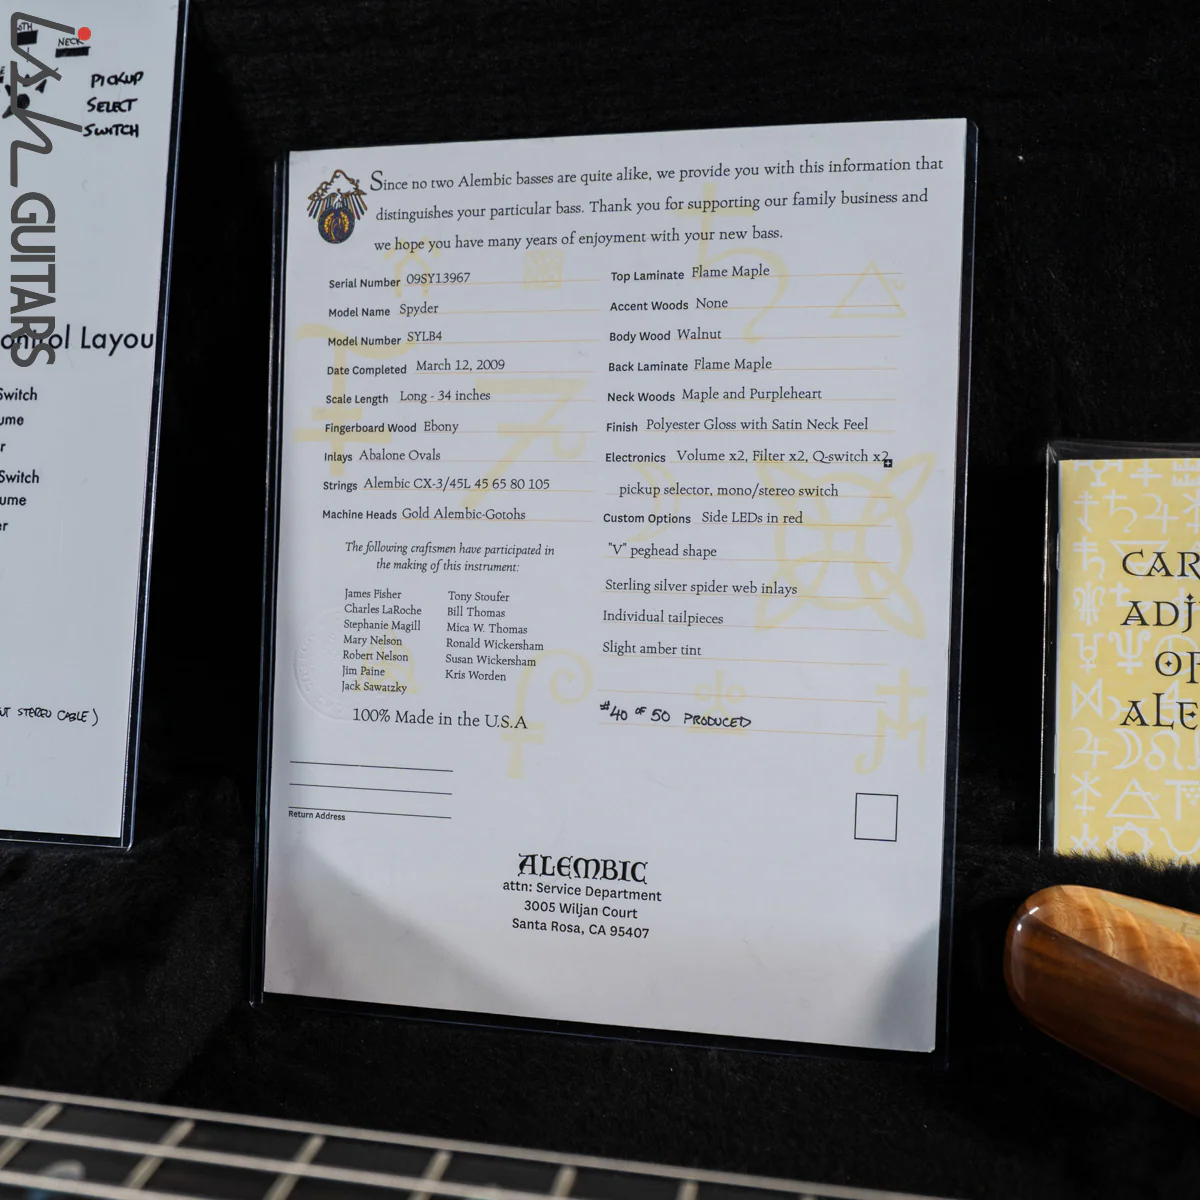 ish GUITARS
NECK
PICKUP
SELECT
SWITCH
Control Layou
Switch
ume
r
Switch
ume
er
UT STEREO CABLE)
Since no two Alembic basses are quite alike, we provide you with this information that
distinguishes your particular bass. Thank you for supporting our family business and
we hope you have many years of enjoyment with your new bass.
Serial Number 09SY13967
Model Name Spyder
Model Number SYLB4
Date Completed March 12, 2009
Scale Length Long - 34 inches
Fingerboard Wood Ebony
Inlays Abalone Ovals
Strings Alembic CX-3/45L 45 65 80 105
Machine Heads Gold Alembic-Gotohs
The following craftsmen have participated in
the making of this instrument:
James Fisher
Charles LaRoche
Stephanie Magill
Mary Nelson
Robert Nelson
Jim Paine
Jack Sawatzky
Tony Stoufer
Bill Thomas
Mica W. Thomas
Ronald Wickersham
Susan Wickersham
Kris Worden
100% Made in the U.S.A
Top Laminate Flame Maple
Accent Woods None
Body Wood Walnut
Back Laminate Flame Maple
Neck Woods Maple and Purpleheart
Finish Polyester Gloss with Satin Neck Feel
Electronics Volume x2, Filter x2, Q-switch x2
pickup selector, mono/stereo switch
Custom Options Side LEDs in red
"V" peghead shape
Sterling silver spider web inlays
Individual tailpieces
Slight amber tint
#40 OF 50 PRODUCED
Return Address
ALEMBIC
attn: Service Department
3005 Wiljan Court
Santa Rosa, CA 95407
CAR
ADJ
OF
ALE